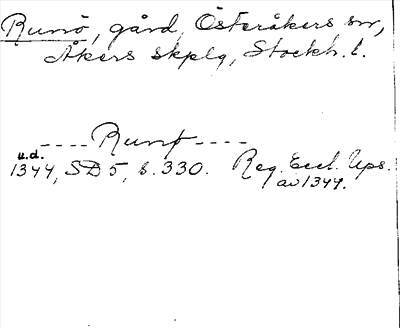 Runsö, gård, Österåkers sn,
Åkers skplg, Stockh. l.
---- Runsø ----
u.d.
1344, SD 5, s. 330. Reg. Eccl. Ups.
av 1344.